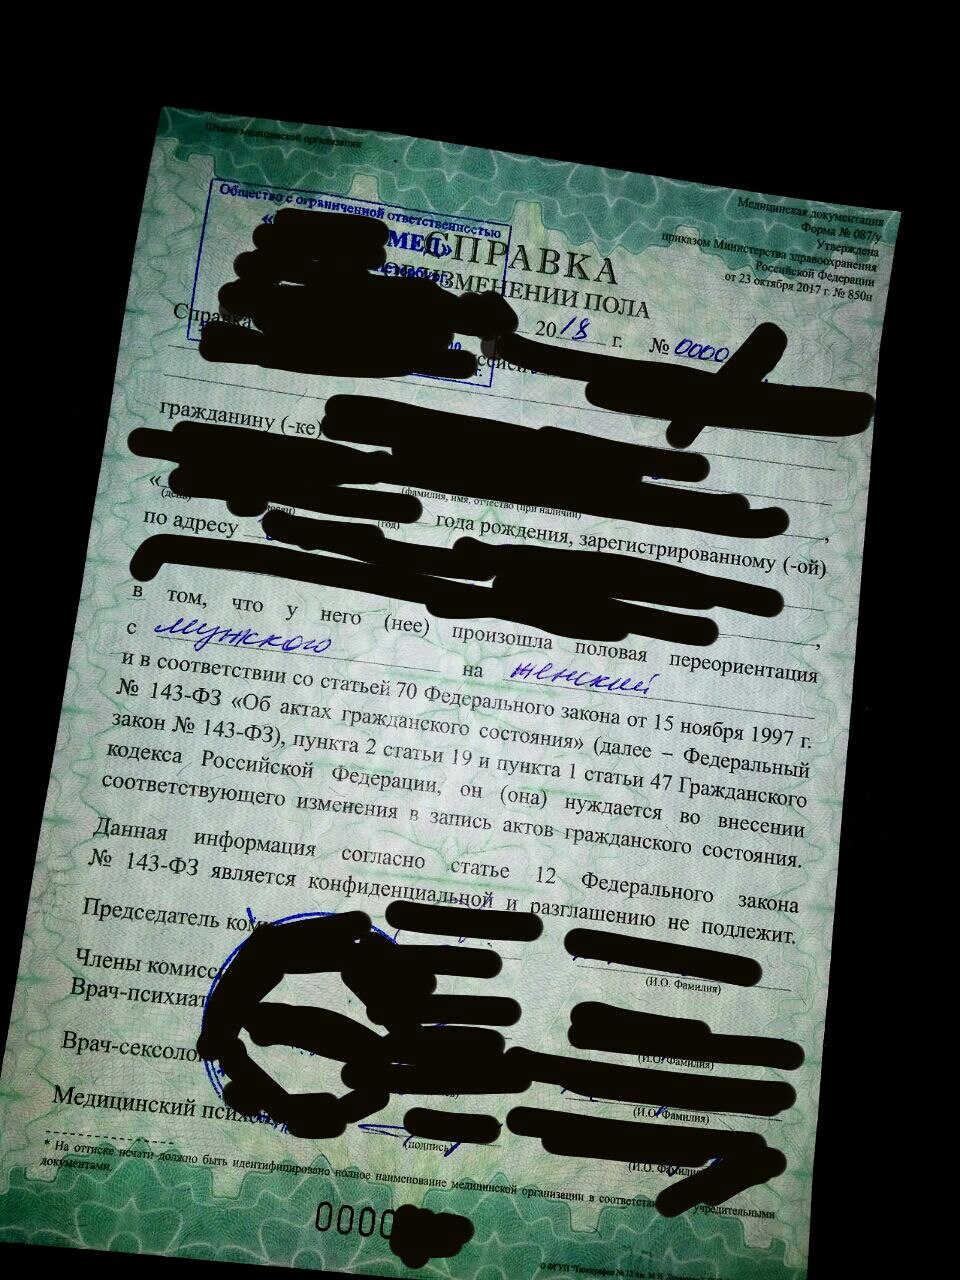 Штамп медицинской организации
Медицинская документация
Форма № 087/у
Утверждена
приказом Министерства здравоохранения
Российской Федерации
от 23 октября 2017 г. № 850н
Общество с ограниченной ответственностью
МЕД»
СПРАВКА
ИЗМЕНЕНИИ ПОЛА
Справка
2018 г. № 0000
гражданину (-ке)
(фамилия, имя, отчество (при наличии)
«
(день)
(год)
года рождения, зарегистрированному (-ой)
по адресу
,
в том, что у него (нее) произошла половая переориентация
с мужского на женский
и в соответствии со статьей 70 Федерального закона от 15 ноября 1997 г.
№ 143-ФЗ «Об актах гражданского состояния» (далее – Федеральный
закон № 143-ФЗ), пункта 2 статьи 19 и пункта 1 статьи 47 Гражданского
кодекса Российской Федерации, он (она) нуждается во внесении
соответствующего изменения в запись актов гражданского состояния.
Данная информация согласно статье 12 Федерального закона
№ 143-ФЗ является конфиденциальной и разглашению не подлежит.
Председатель
(И.О. Фамилия)
Члены
(И.О. Фамилия)
(И.О. Фамилия)
Медицинский
(подпись)
(И.О. Фамилия)
* На оттиске печати должно быть идентифицировано полное наименование медицинской организации в соответствии учредительными
документами.
0000